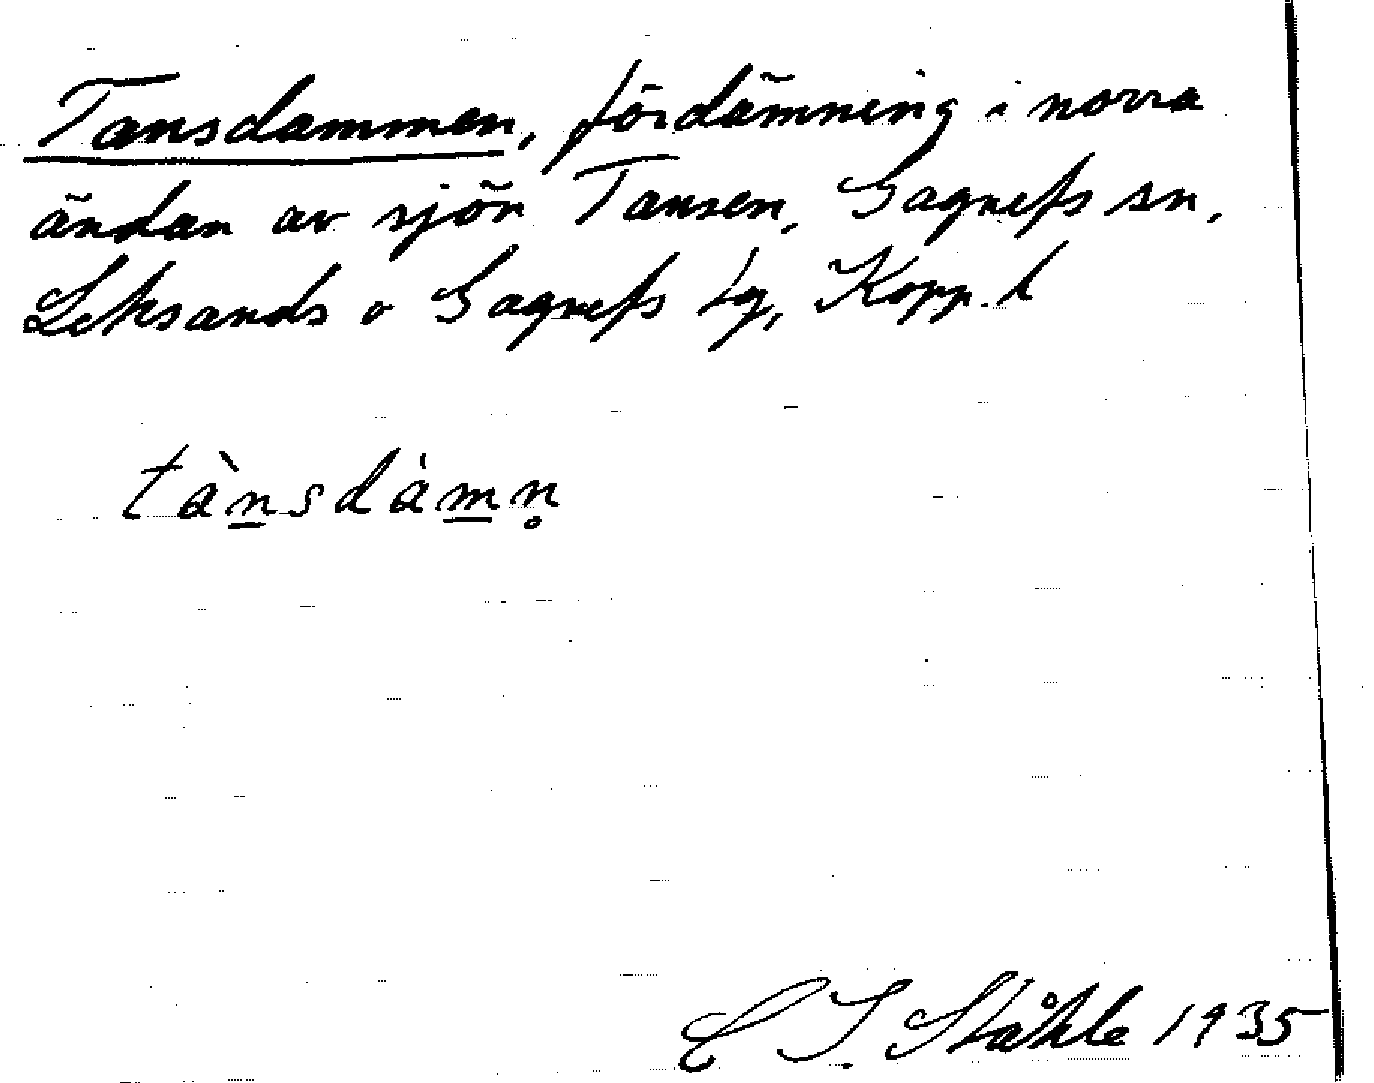 Tansdammen, fördämning i norra
ändan av sjön Tansen, Gagnefs sn,
Leksands o Gagnefs tg, Kopp. l
tànsdàmn̥
C I. Ståhle 1935